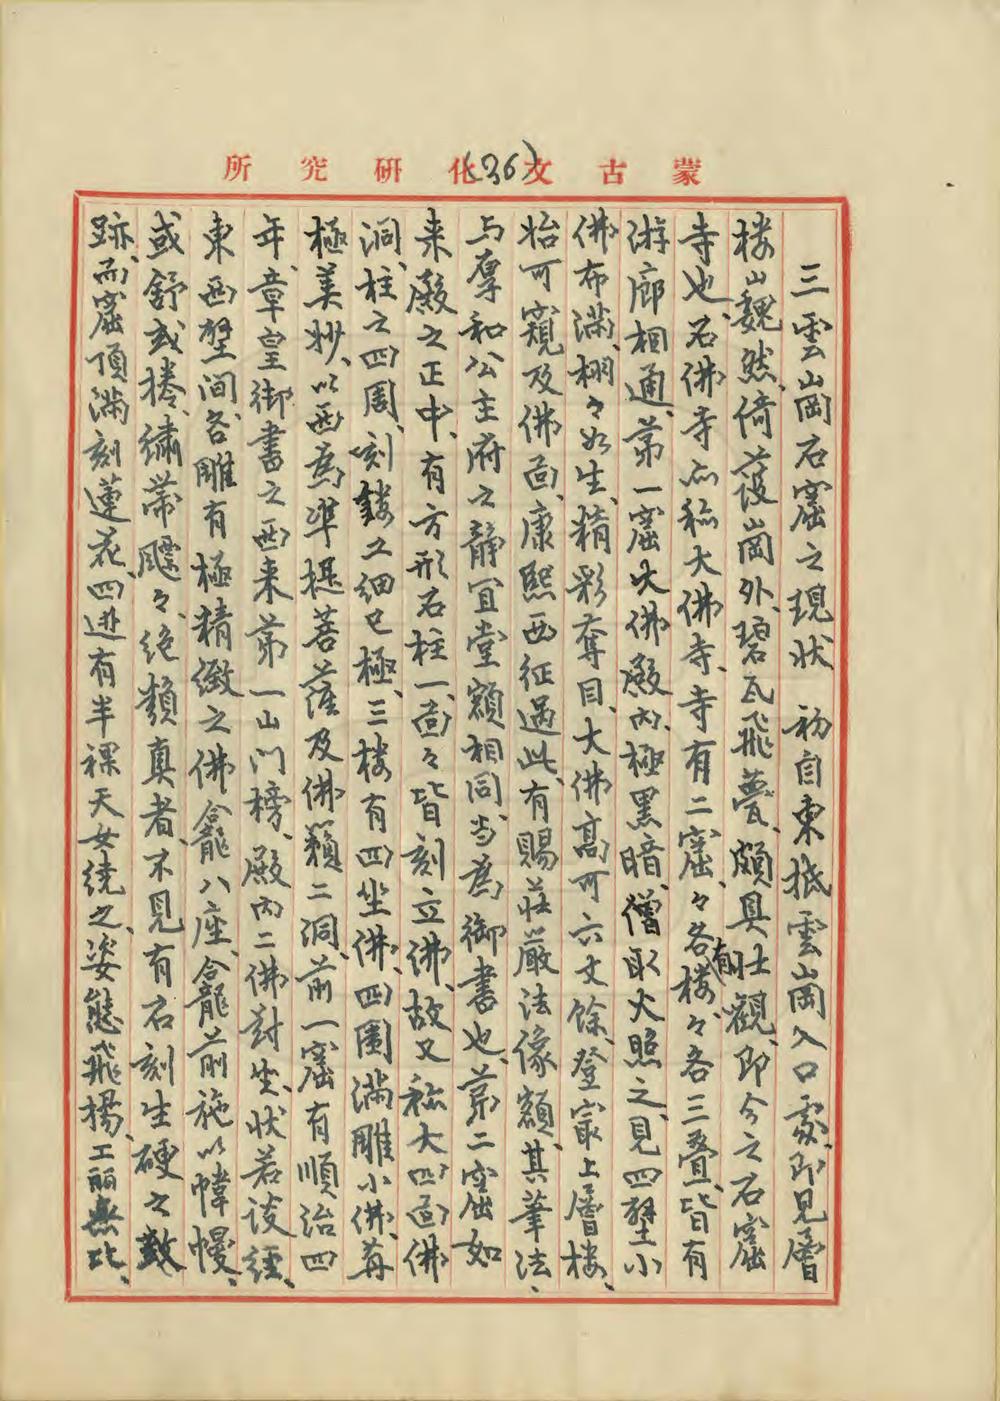 蒙古文化研究所
(36)
三雲山岡石窟之現狀　初自東抵雲山岡入口處、即見層
楼山巍然、倚護崗外、碧瓦飛甍、頗具壮觀、即今之石窟
寺也、石佛寺亦称大佛寺、寺有二窟、々各有楼、々各三叠、皆有
游廊相通、第一窟大佛殿内、極黑暗、僧取火照之、見四壁小
佛布滿、栩々如生、精彩奪目、大佛高可六丈餘、登最上層楼、
始可窺及佛面、康熙西征過此、有賜莊嚴法像額、其筆法、
与厚和公主府之靜宜堂額相同、当為御書也、第二窟如
来殿之正中、有方形石柱一、面々皆刻立佛、故又称大四面佛
洞、柱之四周、刻鏤工細已極、三楼有四坐佛、四圍滿雕小佛、再
極美妙、以西為準提菩薩及佛籟二洞、前一窟有順治四
年、章皇御書之西来第一山门榜、殿内二佛对坐、状若谈經、
東西壁间、各雕有極精緻之佛龕八座、龕前施以幃幔、
或舒或捲、繡帶飃々、绝類真者、不見有石刻生硬之數
跡、而窟頂滿刻蓮花、四进有半裸天女繞之、姿態飛揚、工丽無比、